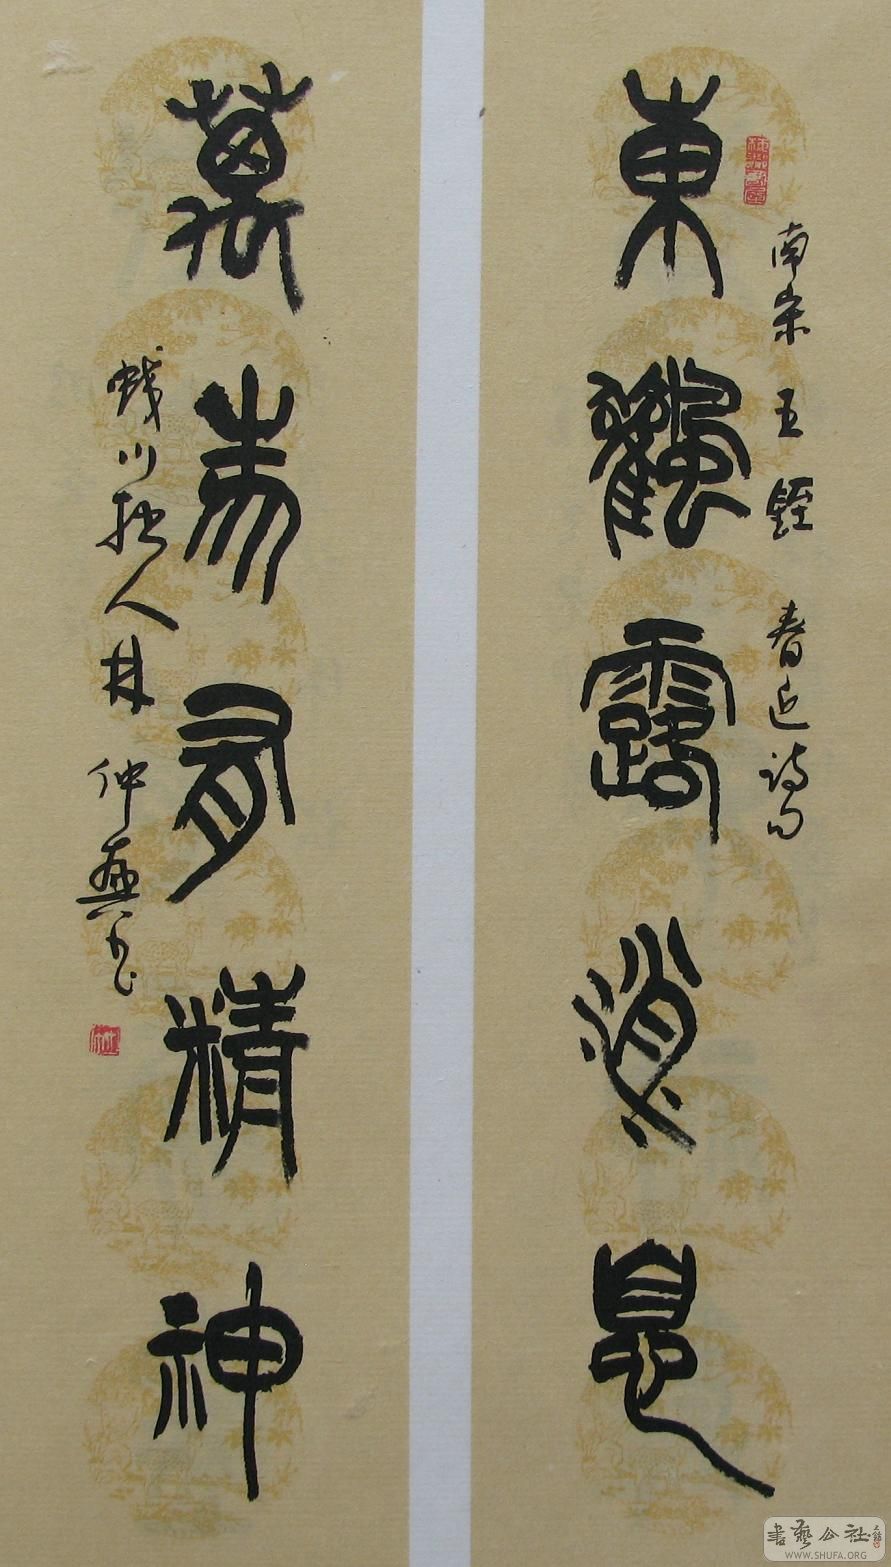 東飌露消息
南宋王銍春近诗句
萬物有精神
川拙人林仲興书
書藝公社
WWW.SHUFA.ORG